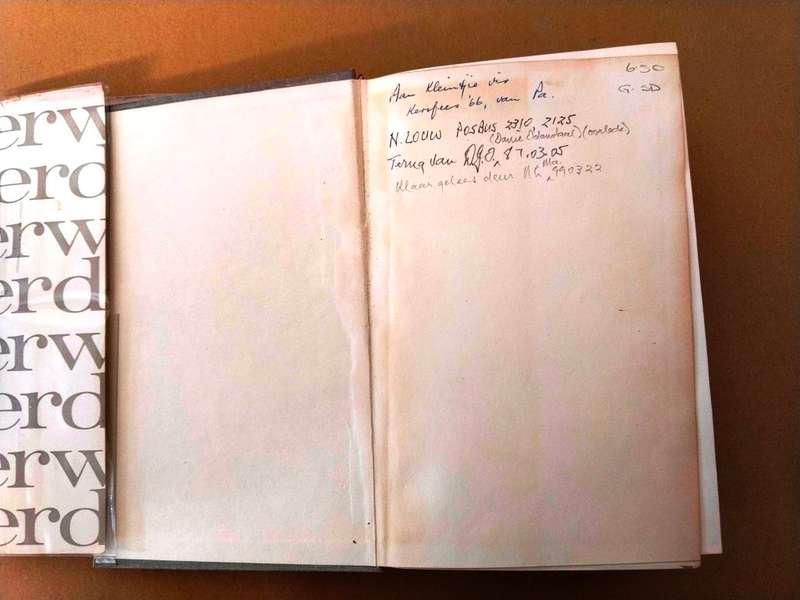 erw
erd
erw
erd
erw
erd
erw
erd
6-50
G. SD
Aan Kleintjie vir
Kersfees '66, van Pa.
N. LOUW POSBUS 2310, 2125
(Danie Odendaal) (oorlede)
Terug van 87.03.05
Ma.
Klaar gelees deur NL 990322